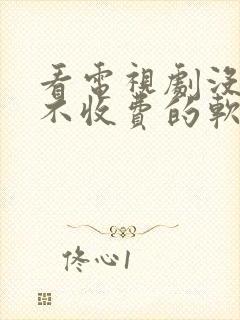 看電視劇沒
不收費的軟
佟心1